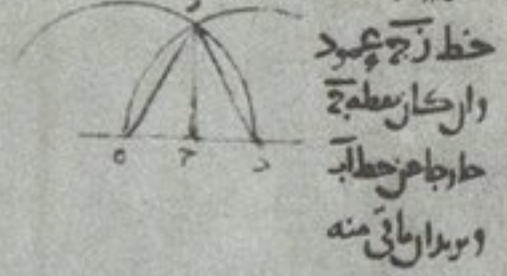 ز
ه ج د
خط زج عمود
وان كان نقطه ج
خارجا من خط اب
و نريد ان ما في منه